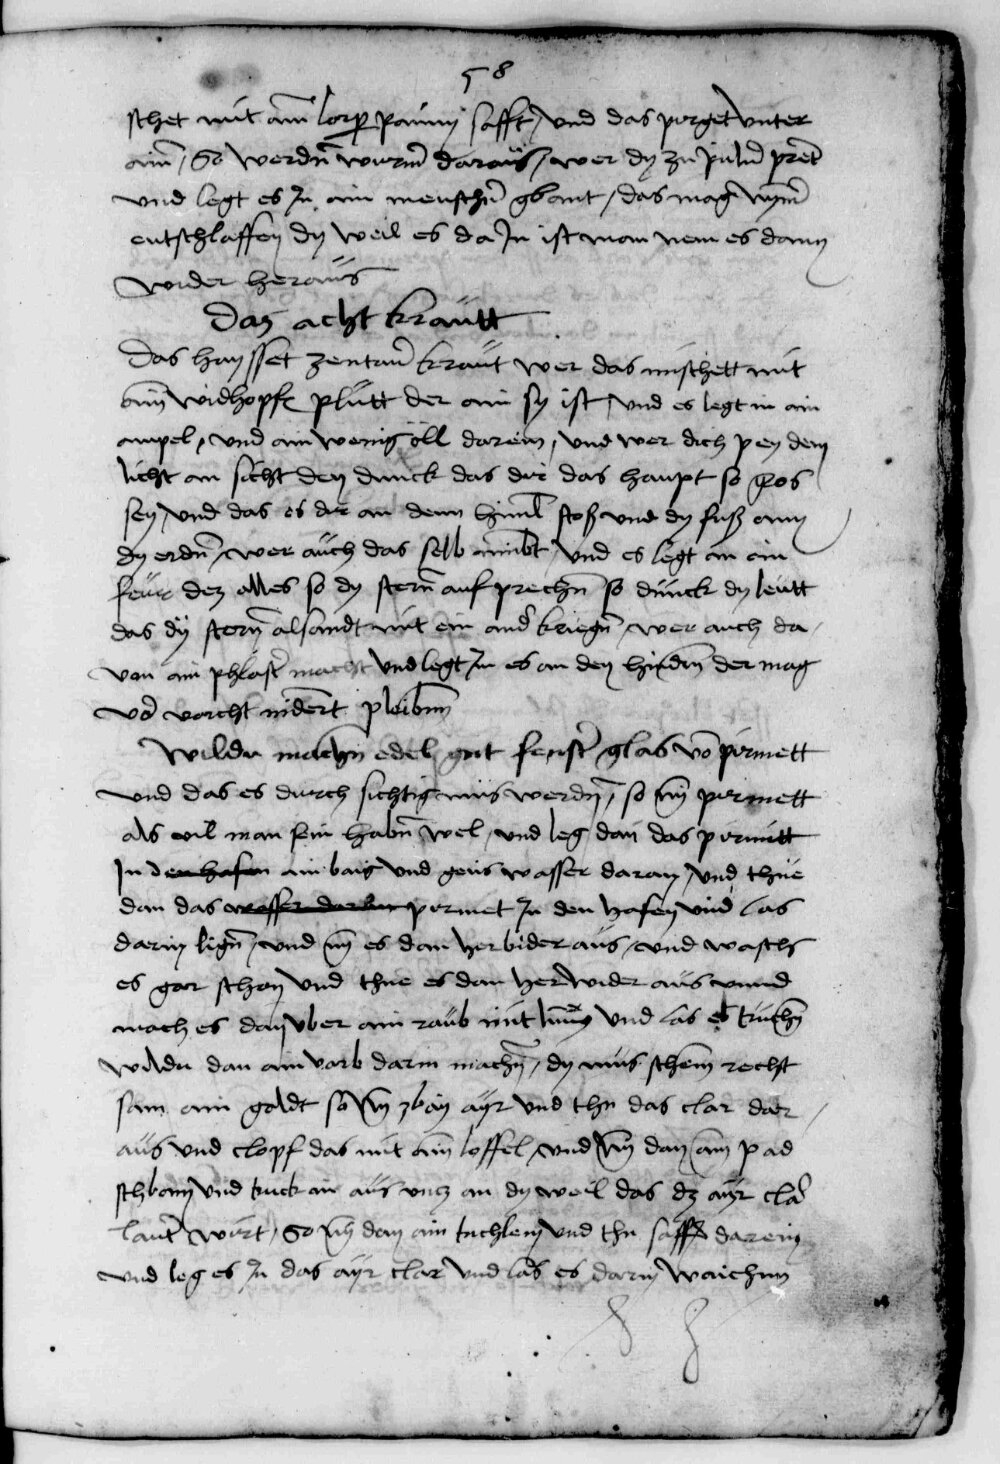 58
schet mit aim lorper paumm safft, und das porget unter
aim, So werdn wurm daraus, wer dy zu pulver prent
und legt es Jn ain menschn gbant, das mag nymer
entschlaffen dy weil es da Jn ist man nem es dann
wider heraus
Daz acht krautt
Das haysset zentaur kraut wer das mischett mit
aim widhopfn pluett der ain sy ist, und es legt in ain
ampel, und ain wenig öll darein, und wer dich pey dem
licht an sicht den dunck das dir das haupt so gros
sey, und das es dir an denn himel stoß und dy fuß ann
dy erdn, wer auch das selb nimbt, und es legt an ain
feur dez alles so dy stern auf prechn so dunck dy leutt
das dy stern alsandt mit ein ander kriegn, wer auch da
von ain phlaster macht und legt Jn es an den hindern der mag
vor vorcht nidert pleibnn
Wildu machn edel gut fenster glas von pirmett
und das es durch sichtig mus werdn, so nym pirmett
als vil man sein habn wel, und leg dan das pirmett
Jn den hafen ain bais und geus wasser daran, und thue
dan das wasser darein pirmet Jn den hafen und las
darin lign, und nym es dan her bider aus, und wasch
es gar schon und thue es dan herwider aus unnd
mach es dan uber ain raub mit und las es truckn
wildu dan ain varb darin machn, dy mus schein recht
sam ain goldt so nym zbay ayr und thu das clar dar
aus und clopf das mit aim loffel, und nym dan ain pad
schbam und truck in aus uncz an dy weil das dz ayr clar
lauter wirt, So nym dan ain tuchlein und thu saffran darein
und leg es Jn das ayr clar und las es darin waichnn